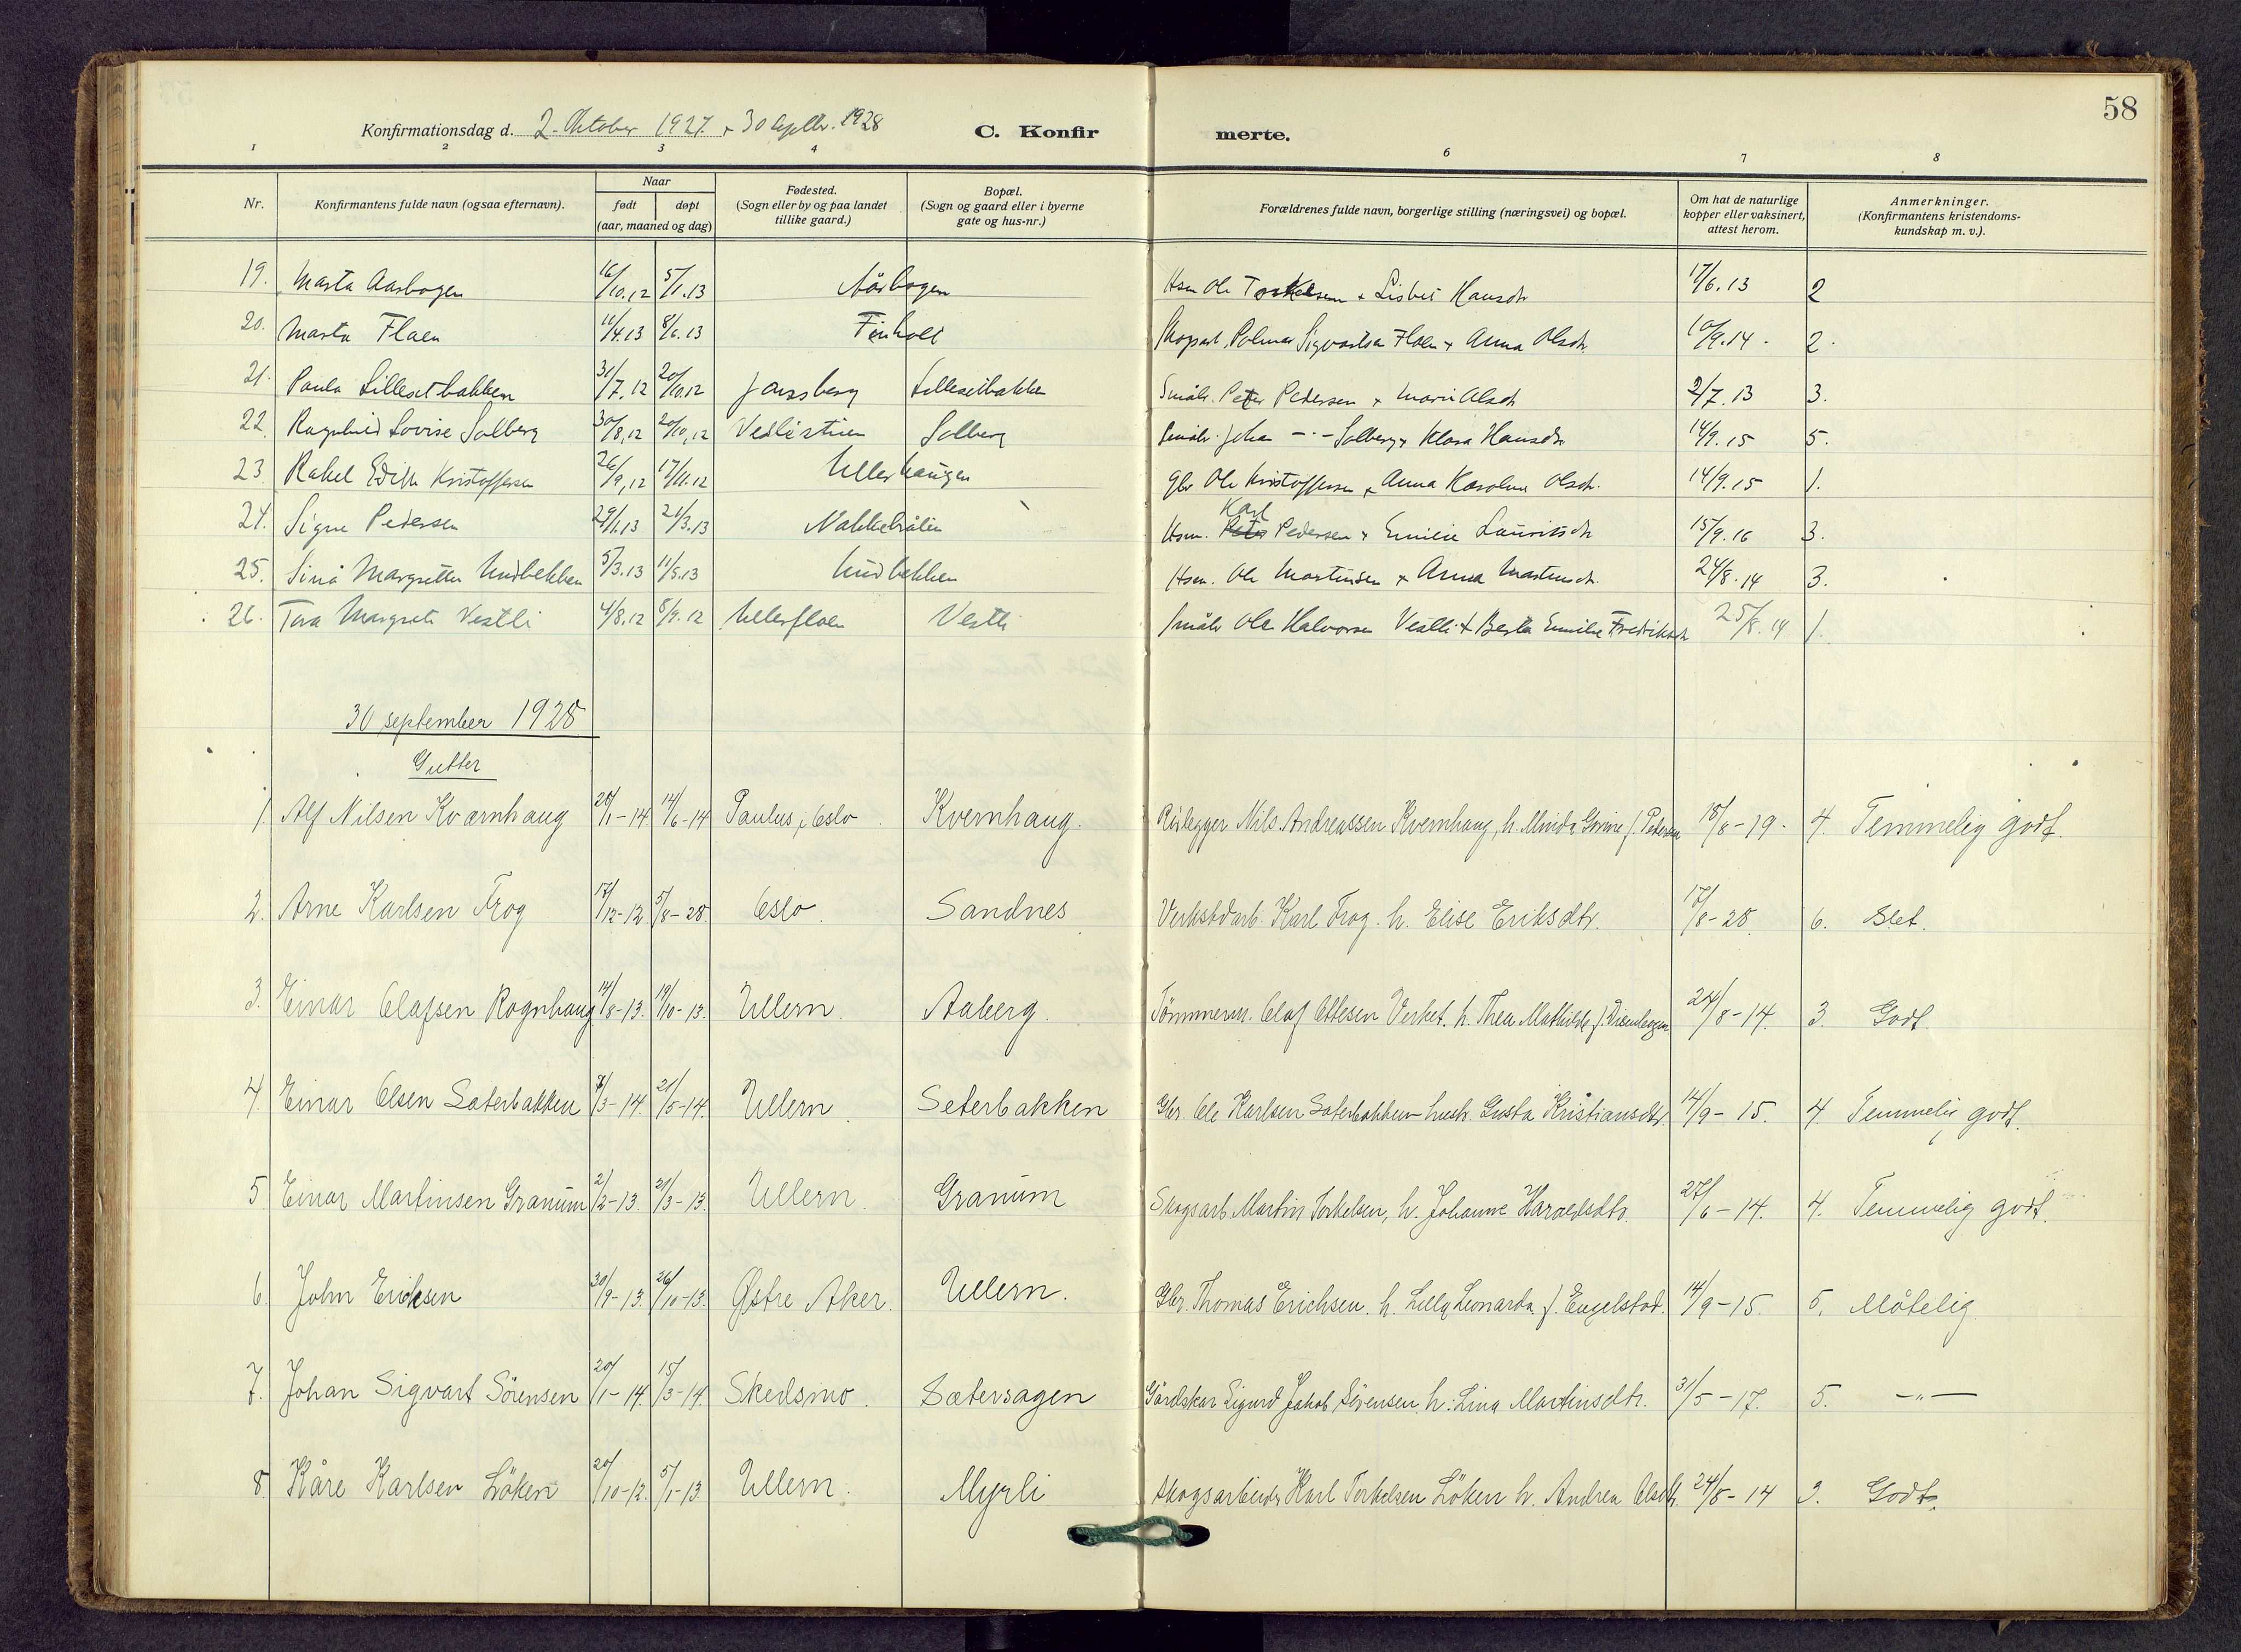 58
Konfirmationsdag d. 2. Oktober 1927. + 30 septbr. 1928 C. Konfir merte.
1 2 3 4 6 7 8
Nr. Konfirmantens fulde navn (ogsaa efternavn). Naar født døpt (aar, maaned og dag) Fødested. (Sogn eller by og paa landet tillike gaard.) Bopæl. (Sogn og gaard eller i byerne gate og hus-nr.) Forældrenes fulde navn, borgerlige stilling (næringsvei) og bopæl. Om hat de naturlige kopper eller vaksinert, attest herom. Anmerkninger. (Konfirmantens kristendoms-kundskap m. v.).
19. Marta Aasbogen 16/10.12 5/1.13 Aasbogen Hsm Ole Torkelsen + Lisbet Hansdr 17/6.13 2
20. Marta Floen 11/4.13 8/6.13 Finholt Sigvartsen Floen + Anna Olsdr. 10/9.14 - 2.
21. Paula Lillesetbakken 31/7.12 20/10.12 Lillesetbakken Småbr. Peter Pedersen + Marie Olsdr 2/7.13 3.
22. Ragnhild Lovise Solberg 30/8,12 20/10,12 Solberg Småbr. Johan -·- Solberg + Klara Hansdr 14/9.15 5.
23. Rakel Edith Kristoffersen 26/9,12 17/11.12 Ullerhaugen Gbr Ole Kristoffersen + Anna Karoline Olsdr. 14/9.15 1.
24. Signe Pedersen 29/1.13 21/3.13 Hsm. Karl Pedersen + Emilie Lauritsdr 15/9.16 3.
25. Margrethe Hudbekken 5/3.13 11/5.13 Hudbekken Hsm. Ole Martinsen + Anna Martinsdr. 24/8.14 3.
26. Tora Margrete Vestli 4/8.12 8/9.12 Ullerfloen Vestli Småbr Ole Halvorsen Vestli + Berta Emilie Fredriksdr 25/8.14 1.
30 september 1928
Gutter
1 Alf Nilsen Kværnhaug 28/1-14. 14/6-14 Paulus, Oslo Kvernhaug. Rørlegger Nils Andreassen Kvernhaug, h. Minda f. Pedersen 18/8-19. 4. Temmelig godt.
2. Arne Karlsen Frog 17/12-12. 5/8-28. Oslo. Sandnes Verkstdarb. Karl Frog. h. Elise Eriksdtr. 17/8-28 6. Slet.
3. Einar Olafsen Rognhaug 14/8-13. 19/10-13. Ullern. Aaberg. Tömmerm. Olaf Ottesen Verket. h. Thea Mathilde f. 24/8-14. 3. Godt.
4. Einar Olsen Sæterbakken 7/3-14. 21/5-14. Ullern. Seterbakken Gbr. Ole Karlsen Sæterbakken hustr. Gusta Kristiansdtr. 14/9-15. 4. Temmelig godt.
5. Einar Martinsen Granum 2/2-13. 21/3-13. Ullern. Granum Skogsarb. Martin Torkelsen, h. Johanne Haraldsdtr. 27/6-14. 4. Temmelig godt.
6. John Ericksen 30/9-13. 26/10-13. Østre Aker. Ullern. Gbr. Thomas Erichsen. h. Lilly Leonarda f. Engelstad. 14/9-15. 5. Måtelig
7. Johan Sigvart Sörensen 20/1-14. 15/3-14. Skedsmo. Sætersagen Gårdskar Sigurd Jakob Sörensen. h. Lina Martinsdtr. 31/5-17. 5. -"-
8. Kåre Karlsen Löken 20/10-12. 5/1-13. Ullern. Myrli Skogsarbeider Karl Torkelsen Löken h. Andrea Olsdtr. 24/8-14 3. Godt.